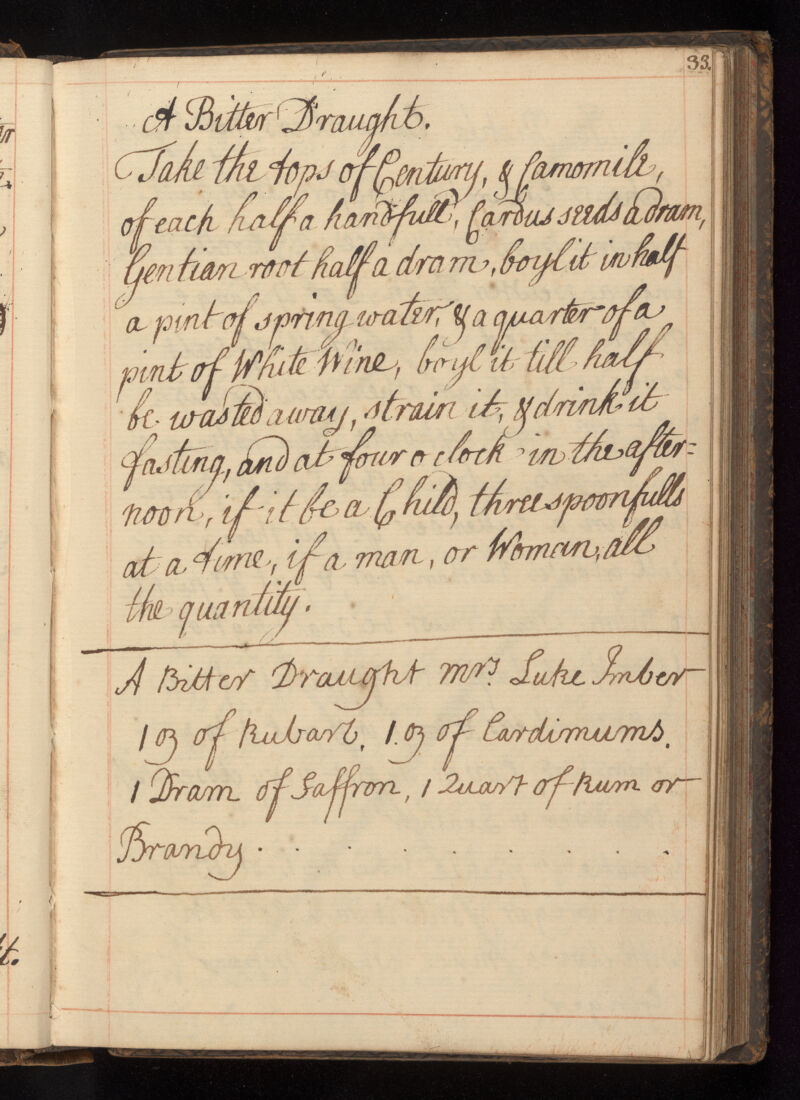 33.
A Bitter Draught.
Take the tops of Century, & Camomile,
of each half a handfull, Cardus seeds a dram,
Gentian root half a dram, boyl it in half
a pint of spring water, & a quarter of a
pint of White Wine, boyl it till half
be wasted away, strain it, & drink it
fasting, and at four o clock in the after=
noon, if it be a Child, three spoonfulls
at a time, if a man, or Woman, all
the quantity.
A Bitter Draught Mrs. Luke Imber
1 oz of Rubarb, 1. oz of Cardimums.
1 Dram of Saffron, 1 Quart of Rum or
Brandy . . . . . . . . .
t.